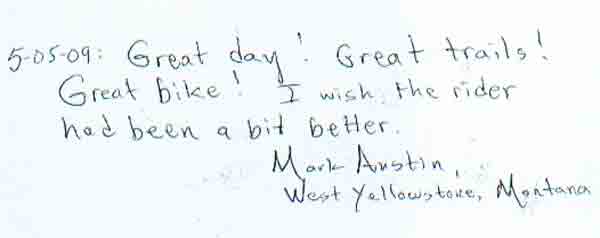 5-05-09: Great day! Great trails!
Great bike! I wish the rider
had been a bit better.
Mark Austin,
West Yellowstone, Montana